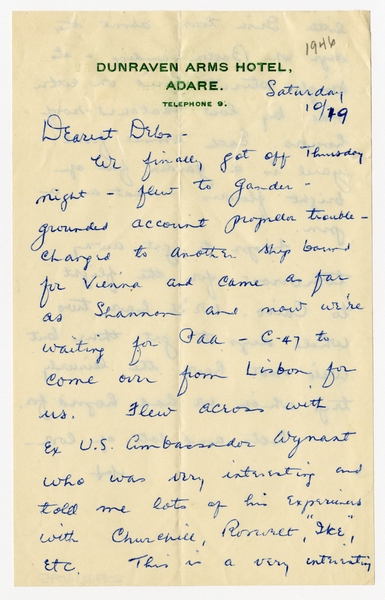 1946
DUNRAVEN ARMS HOTEL,
ADARE.
TELEPHONE 9.
Saturday
10/19
Dearest Delos -
We finally got off Thursday
night - flew to Gander -
grounded account propellor trouble -
changed to another ship bound
for Vienna and came as far
as Shannon and now we're
waiting for PAA - C 47 to
come over from Lisbon for
us. Flew across with
Ex U.S. Ambassador Wynant
who was very interesting and
told me lots of his experiences
with Churchill, Rosevelt, "Ike",
etc. This is a very interesting